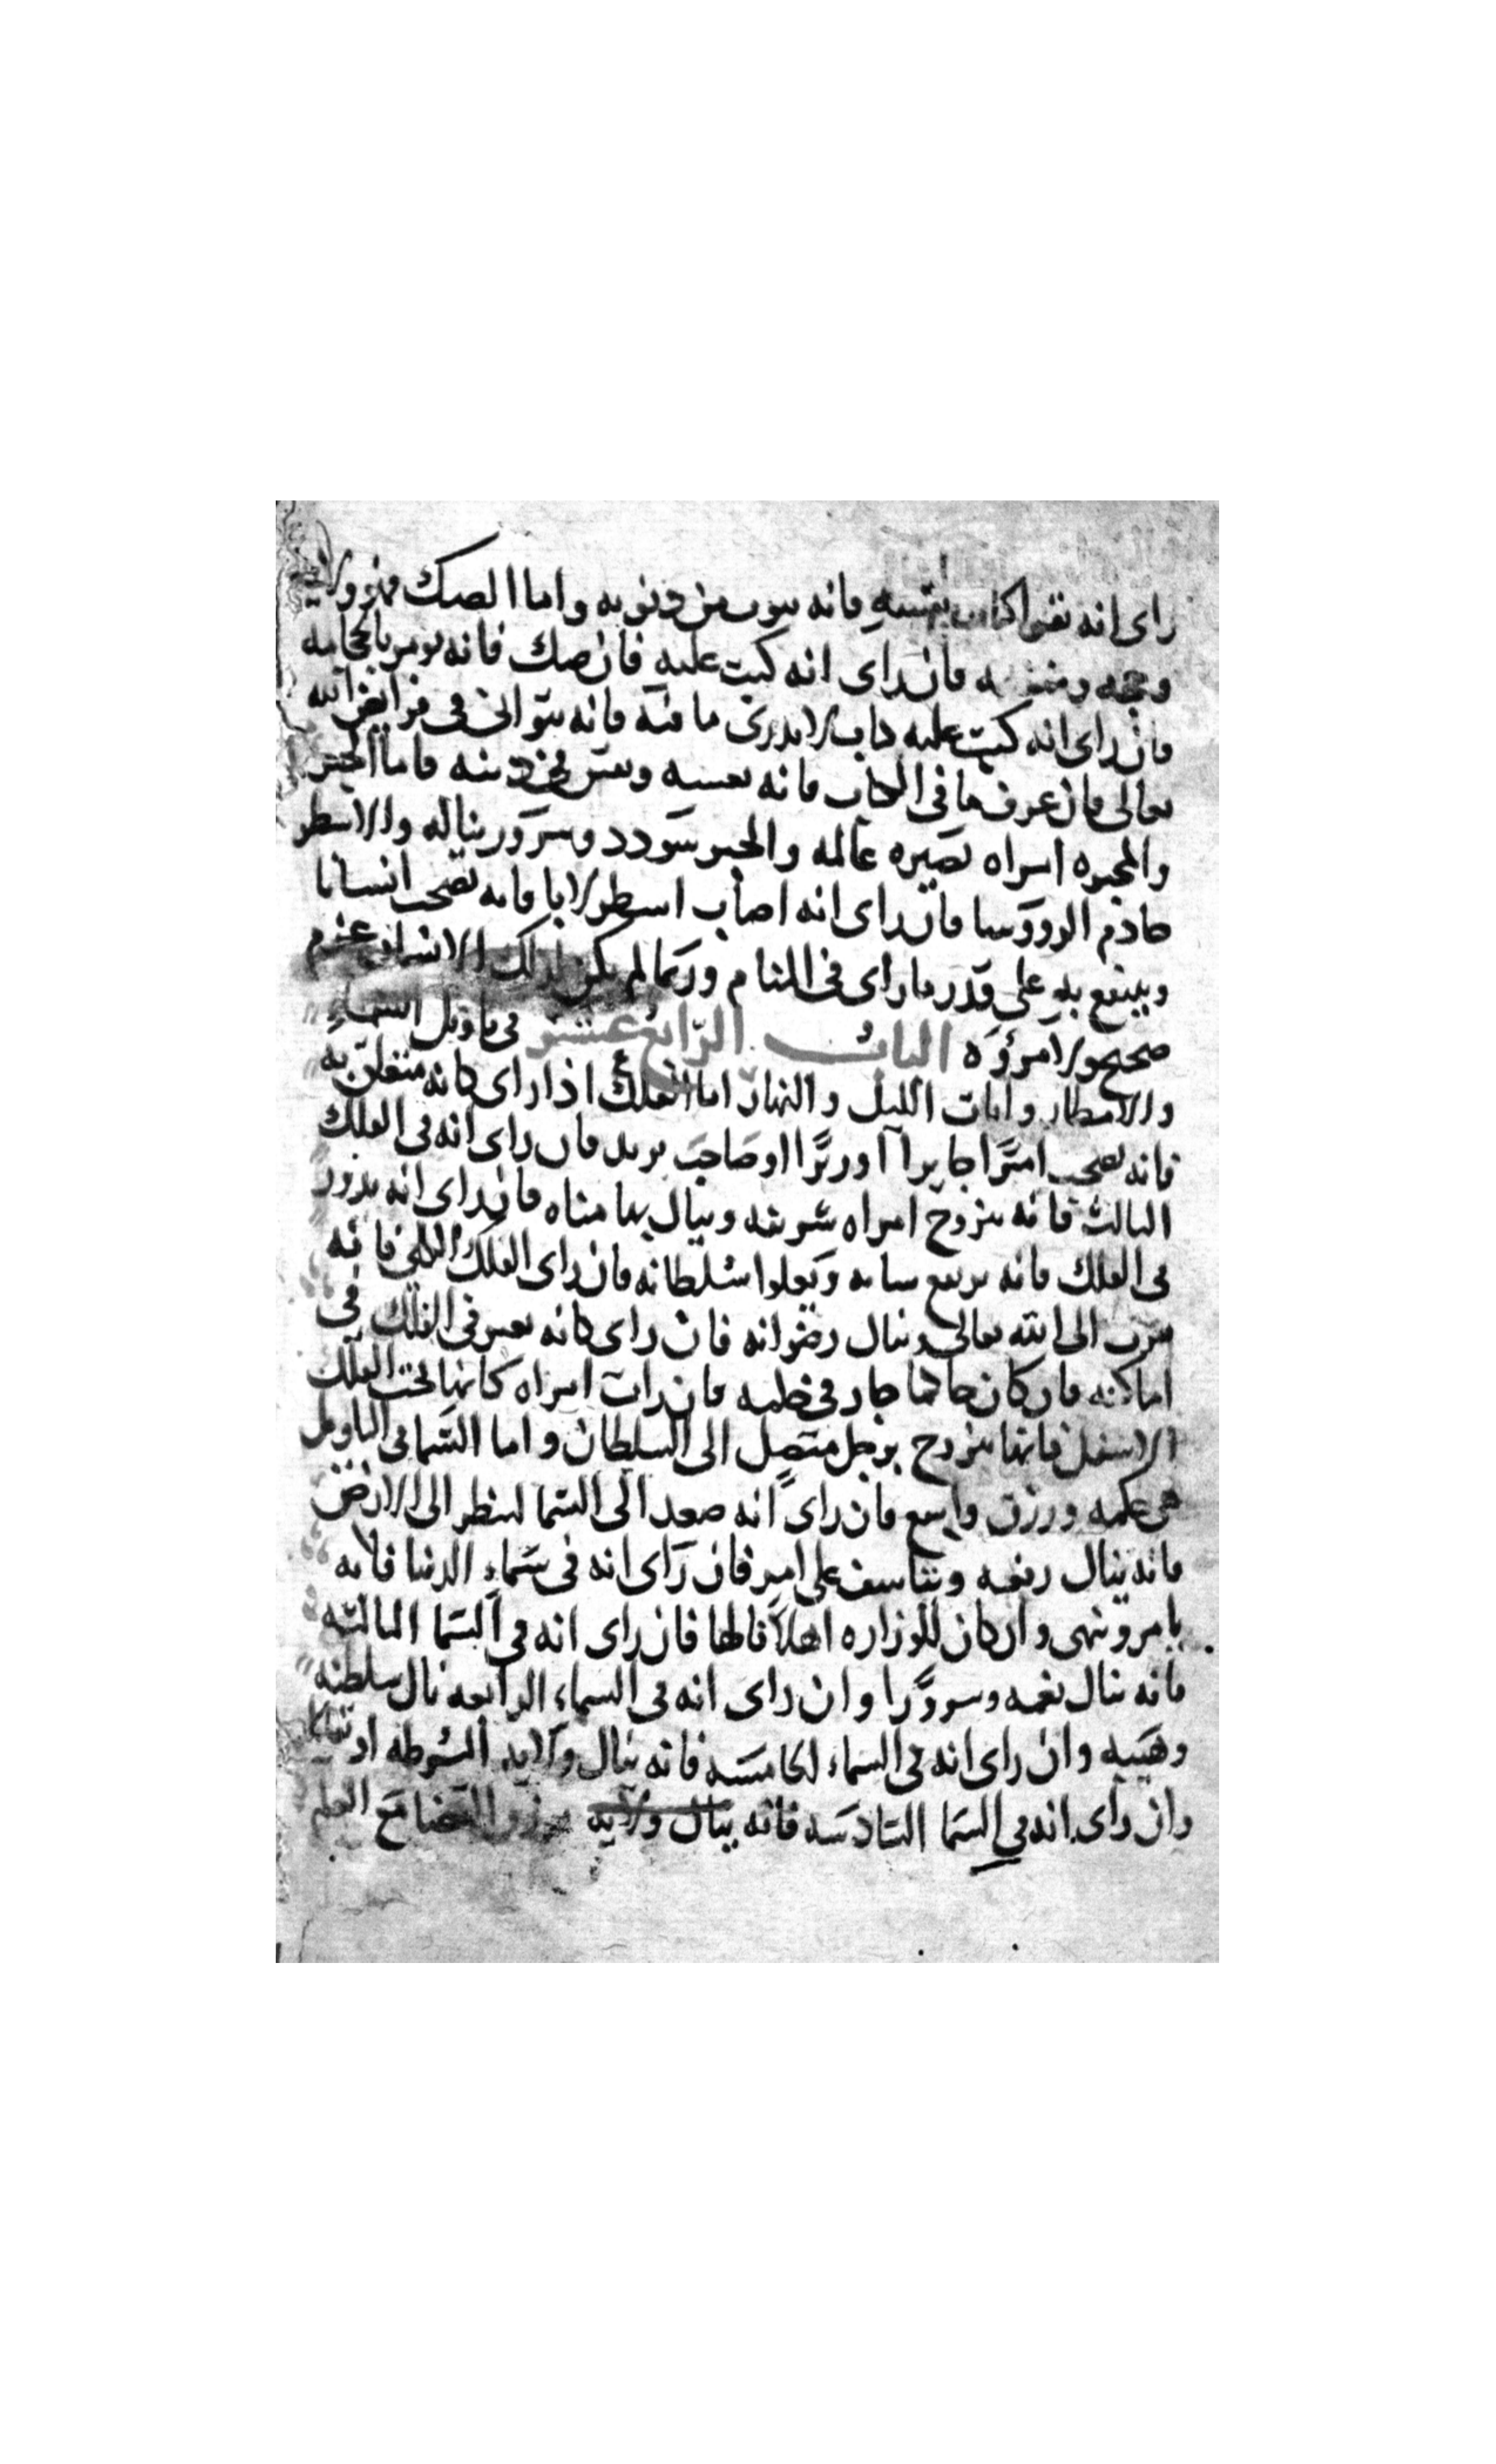 راى انه نقرا كتاب نفسه فانه سوب من ذنوبه واما الصك فهو ولايه
وجهه ومنفعه فان راى انه كتب عليه فان صك فانه يومر بالحجامه
فان راى انه كتب عليه كتاب لا يدرى ما فيه فانه يتوانى فى فرايض الله
تعالى فان عرف ما فى الكتاب فانه
والمحبره امراه تصيره عالمه والحبر سودد وسرور يناله والاسطر
خادم الرووسا فان راى انه اصاب اسطرلابا فانه يصحب انسانا
وينتفع به على قدر ما راى فى المنام وربما لم يكن لذلك الانسان عزم
صحيح ولا مروه الباب الرابع عشر فى تاويل السماء
والامطار وايات الليل والنهار اما الفلك اذا راى كانه متعلق به
فانه يصحب اميرا جايرا او وزيرا او صاحب بريد فان راى انه فى الفلك
الثالث فانه يتزوج امراه شريفه وينال بها مناه فان راى انه يدور
فى الفلك فانه يرتفع شانه ويعلوا سلطانه فان راى الفلك الكلى فانه
يتقرب الى الله تعالى وينال رضوانه فان راى كانه يعبر فى الفلك فى
اماكنه فان كان حاكما جار فى حكمه فان رات امراه كانها تحت الفلك
الاسفل فانها تتزوج برجل متصل الى السلطان واما السما فى التاويل
هى حكمه ورزق واسع فان راى انه صعد الى السما لينظر الى الارض
فانه ينال رفعه ويتاسف على امر فان راى انه فى سماء الدنيا فانه
يامر وينهى وان كان للوزاره اهلا نالها فان راى انه فى السما الثالثه
فانه ينال نعمه وسرورا وان راى انه فى السماء الرابعه نال سلطنه
وهيبه وان راى انه فى السماء الخامسه فانه ينال ولايه الشرطه او
وان راى انه فى السما السادسه فانه ينال ولايه القضا مع العلم